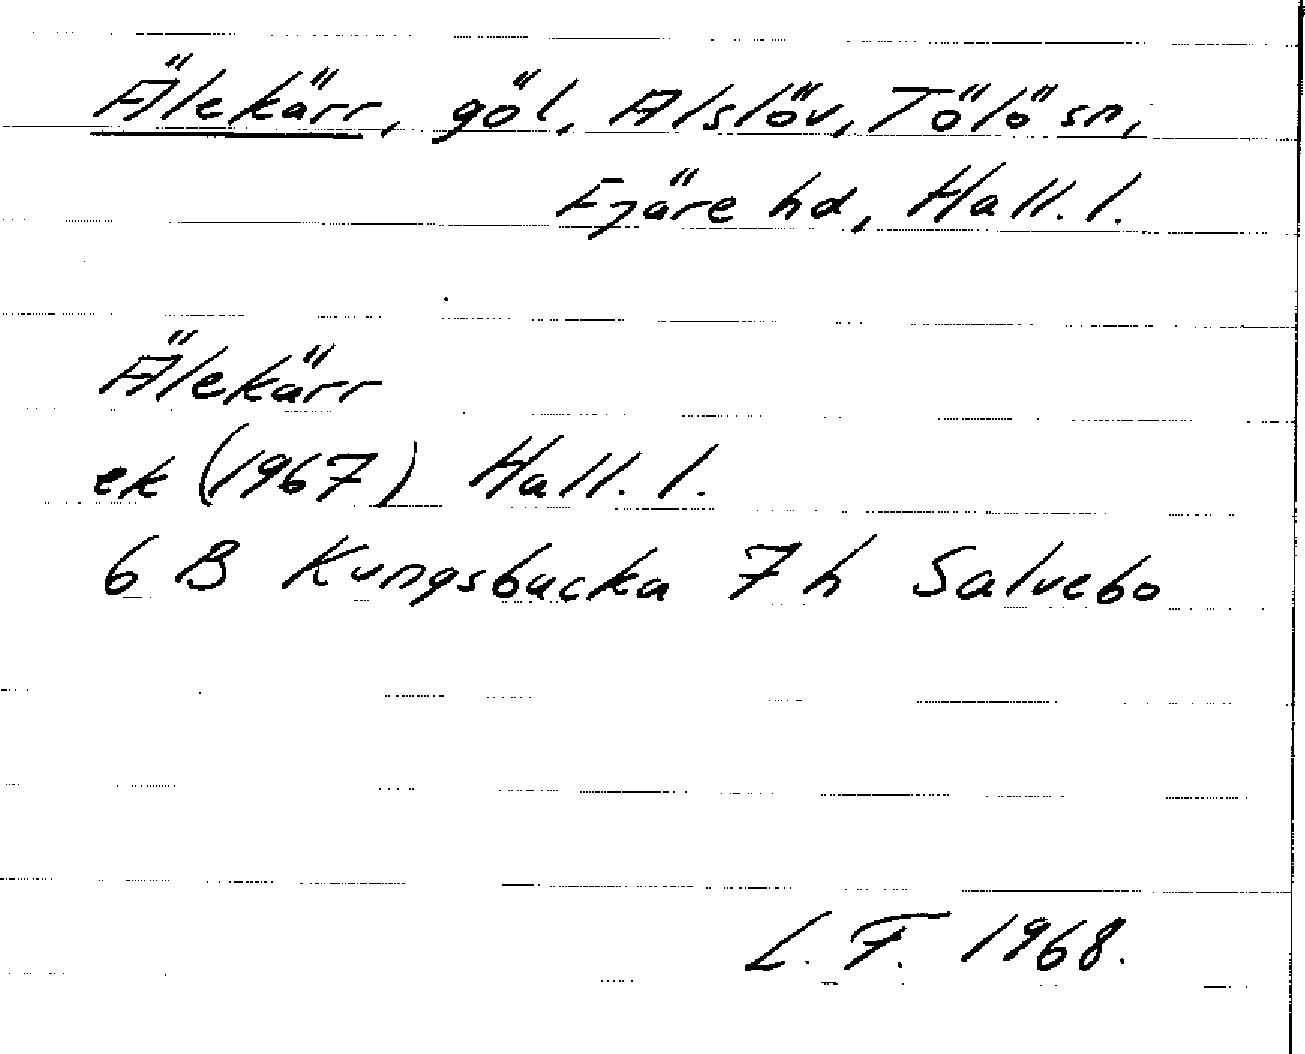 Älekärr, göl, Alslöv, Tölö sn,
Fjäre hd, Hall. l.
Älekärr
ek (1967) Hall. l.
6 B Kungsbacka 7 h Salvebo
L. F. 1968.